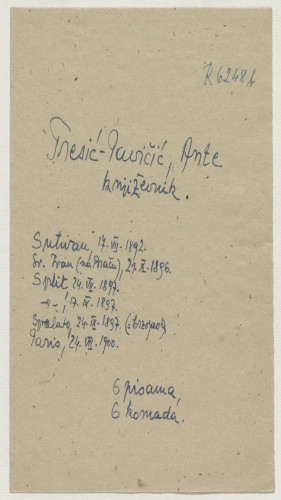 R6248b
Tresić-Pavičić, Ante
književnik.
Sutivan 17.VII.1892.
Sv. Ivan (na Braču), 21.X.1896.
Split 24.VII.1897.
-"-, 17.IX.1897.
Spalato, 24.IX.1897. (brzojav)
Paris, 24.VII.1900.
6 pisama,
6 komada.